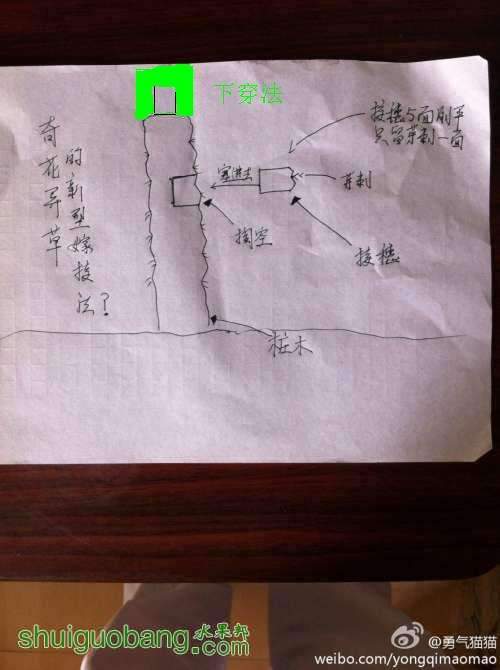 下穿法
奇花异草
的新型嫁接法?
接穗5面削平
只留芽刺一面
塞进去
芽刺
掏空
接穗
桩木
水果邦
shuiguobang.com
@勇气猫猫
weibo.com/yongqimaomao